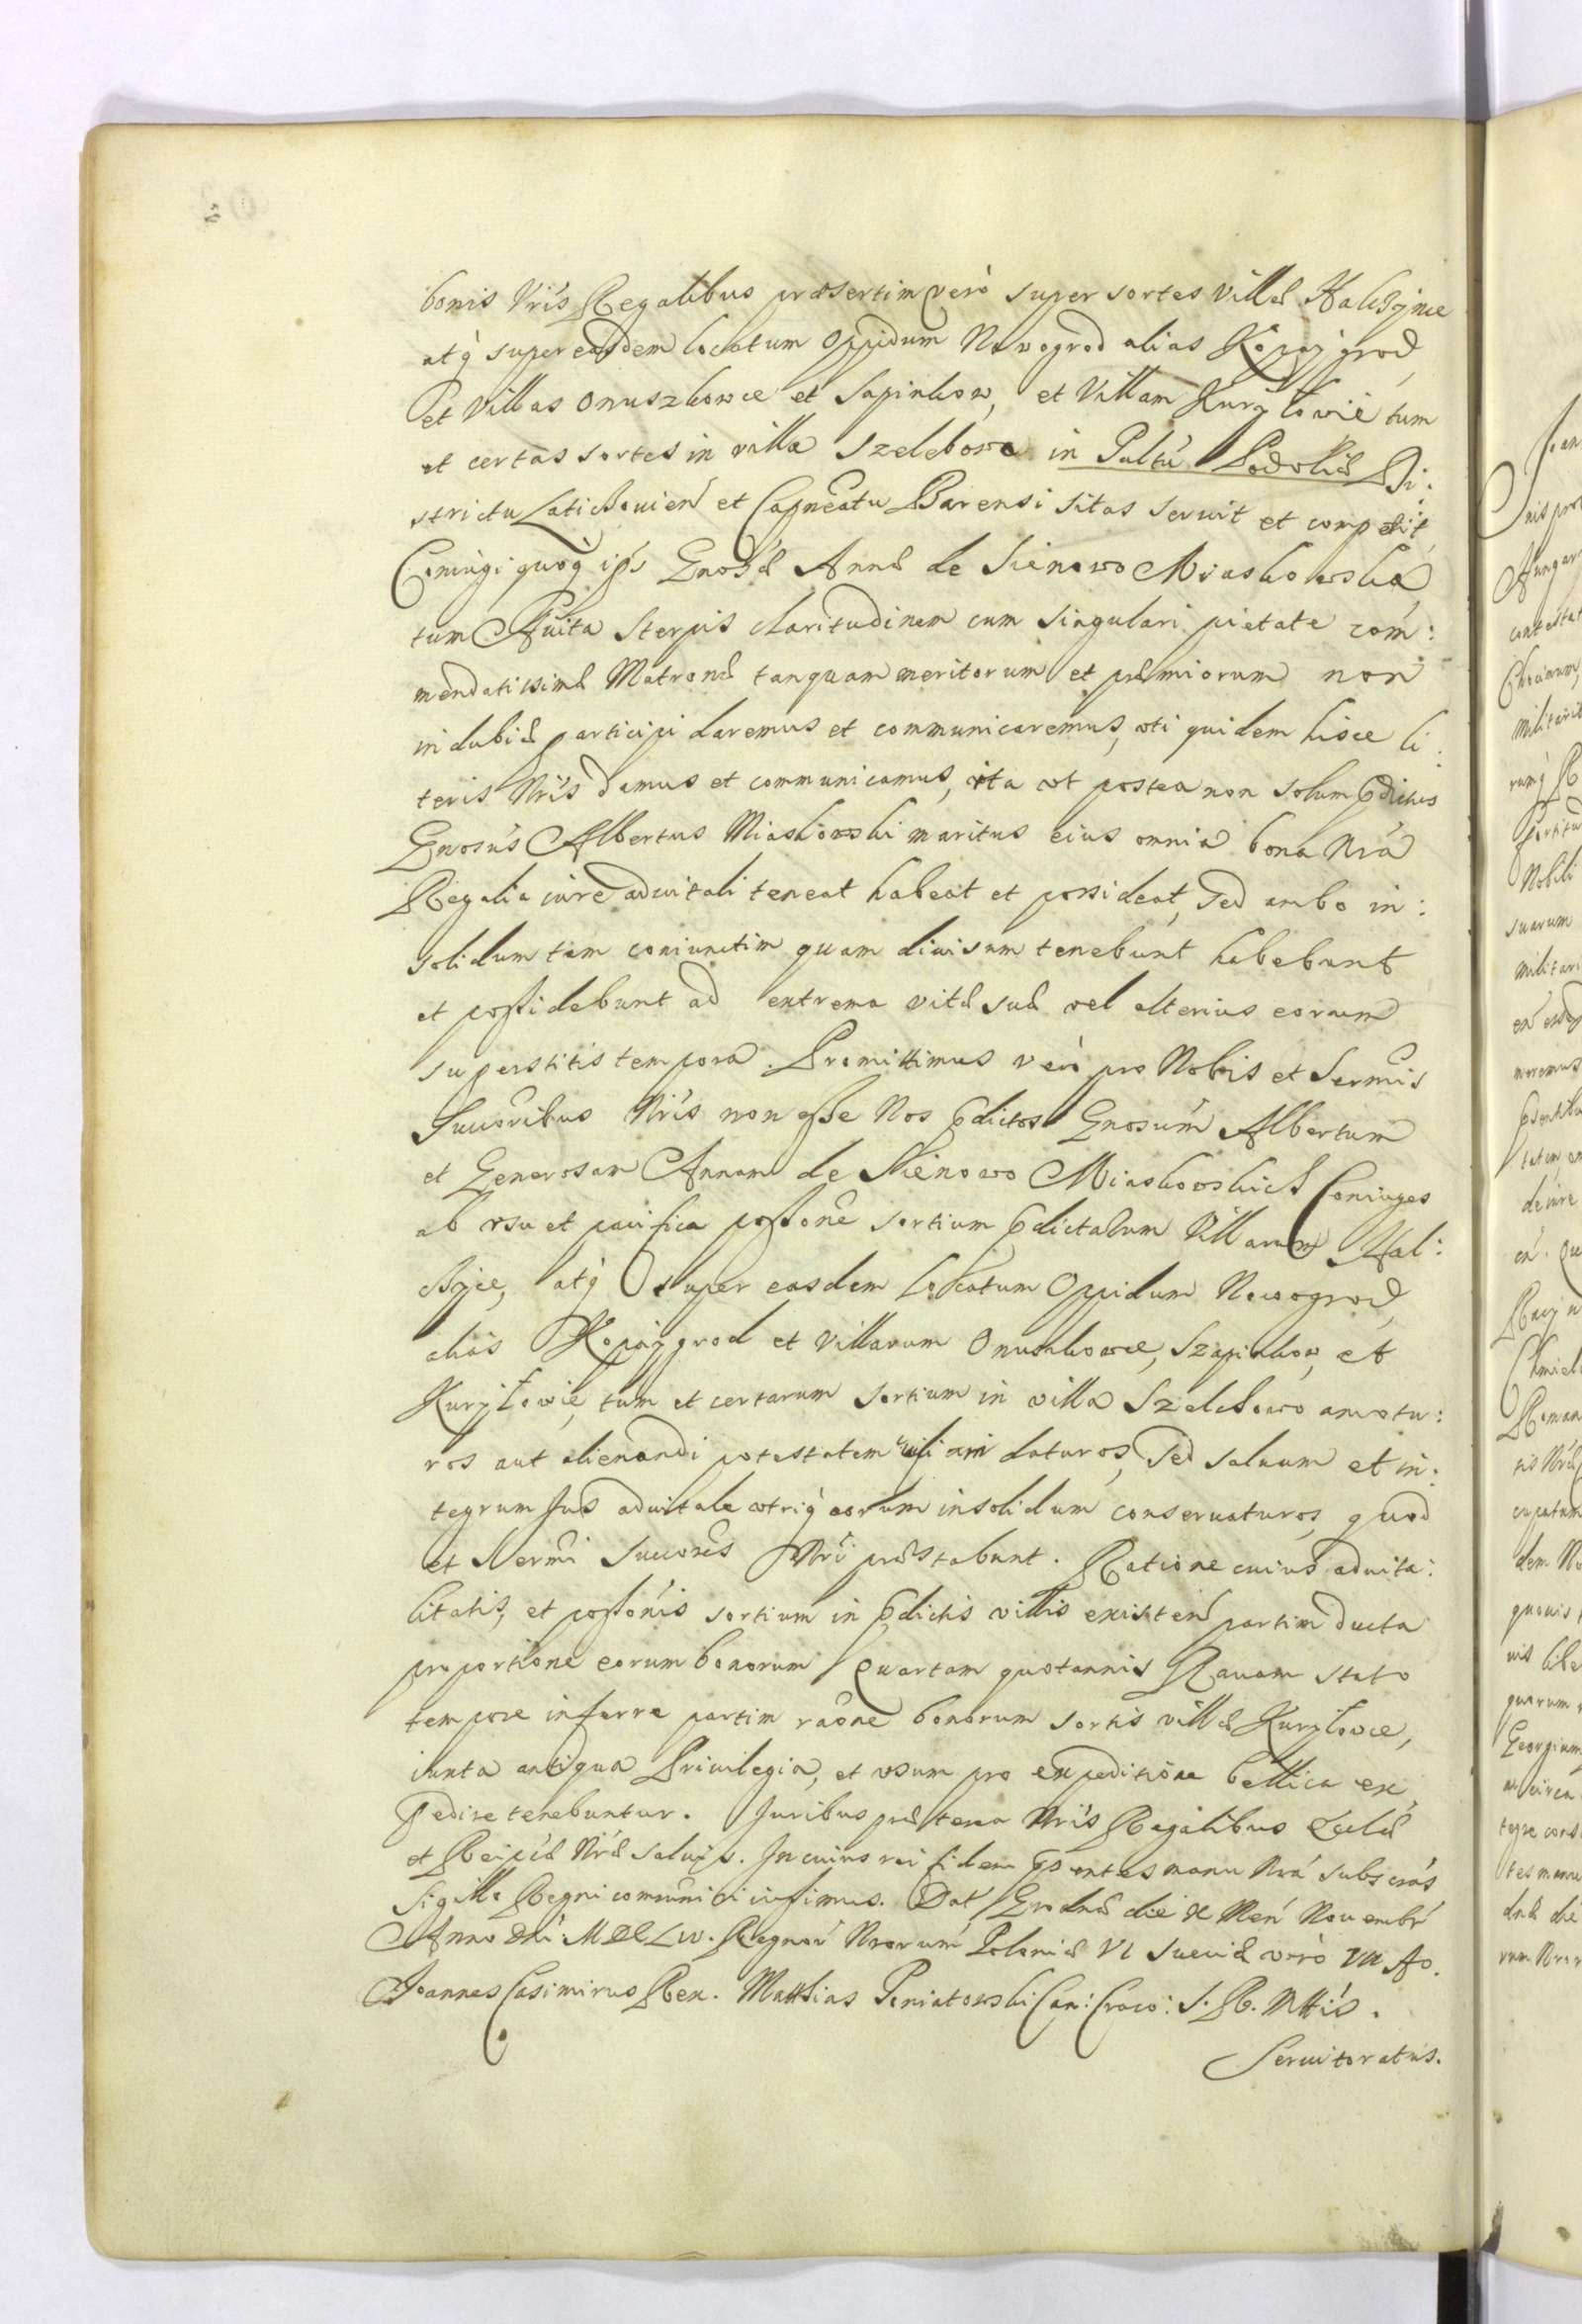 bonis Nris Regalibus præsertim vero super sortes villæ Halczynce
atq super easdem locatum Oppidum Nowogrod alias Kopaygrod
et Villas Onuszkowce et Sapinkow, et Villam Kuryłowie tum
et certas sortes in villa Szelebowo in Paltu Podoliæ Di:
strictu Laticzouien et Capneatu Barensi sitas seruit et competit
Coniugi quoq ipś Gnosæ Annæ de Sienowo Miaskowska,
tum Auita sterpis claritudinem cum singulari pietate com:
mendatissimæ Matronæ tanquam meritorum et præmiorum non
indubiæ participi daremus et communicaremus, vti quidem hisce li:
teris Nris damus et communicamus, ita vt postea non solum pdictus
Gnosus Albertus Miaskowski maritus eius omnia bona Nra
Regalia iure aduitali teneat habeat et possideat, sed ambo in:
solidum tam coniunctim quam diuisum tenebunt habebunt
et possidebunt ad extrema vitæ suæ vel alterius eorum
superstitis tempora. Promittimus vero pro Nobis et Sermis
Succoribus Nris non esse Nos pdictos Gnosum Albertum
et Generosam Annam de Sienowo Miaskowskich Coniuges
ab vsu et pacifica possone sortium pdictarum Villarum Hal:
czyce, atq super easdem Locatum Oppidum Nowogrod,
alias Kopaygrod et villarum Onuskowce, Szapinkow, et
Kuryłowie, tum et certarum sortium in villa Szelebowo amotu:
ros aut alienandi potestatem cuipiam daturos, sed saluum et in:
tegrum Jus aduitale vtriq eorum insolidum conseruaturos, quod
et Sermi Succores Nri præstabunt. Ratione cuius aduita:
litatis, et possonis sortium in pdictis villis existen partim ducta
proportione eorum bonorum quartam quotannis Rauam stato
tempore inferre partim raone bonorum sortis villæ Kuryłowce,
iuxta antiqua Priuilegia, et vsum pro expeditione bellica ex
pedire tenebuntur. Juribus præterea Nris Regalibus Eccleæ
et Reipcæ Nræ saluis. In cuius rei fidem psentes manu Nra subscras
Sigillo Regni communiri iussimus. Dat Grodnæ die X Men Nouembr
Anno Dni: MDCLIV. Regnor Nrorum Poloniæ VI Sueciæ vero VII Ao.
Joannes Casimirus Rex. Matthias Poniatowski Can: Craco: S. R. Mttis.
Seruitoratus.